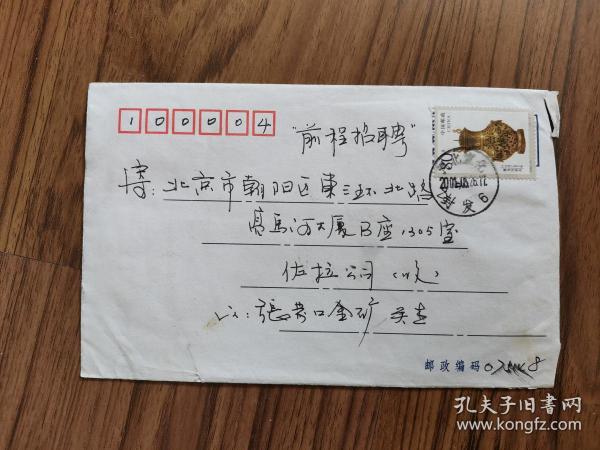 100004
"前程招聘"
寄:北京市朝阳区東三环北路
亮马河大厦B座1305室
佐拉公司(收)
张家口金矿
邮政编码
中国邮政
CHINA
80
孔夫子旧书网
www.kongfz.com